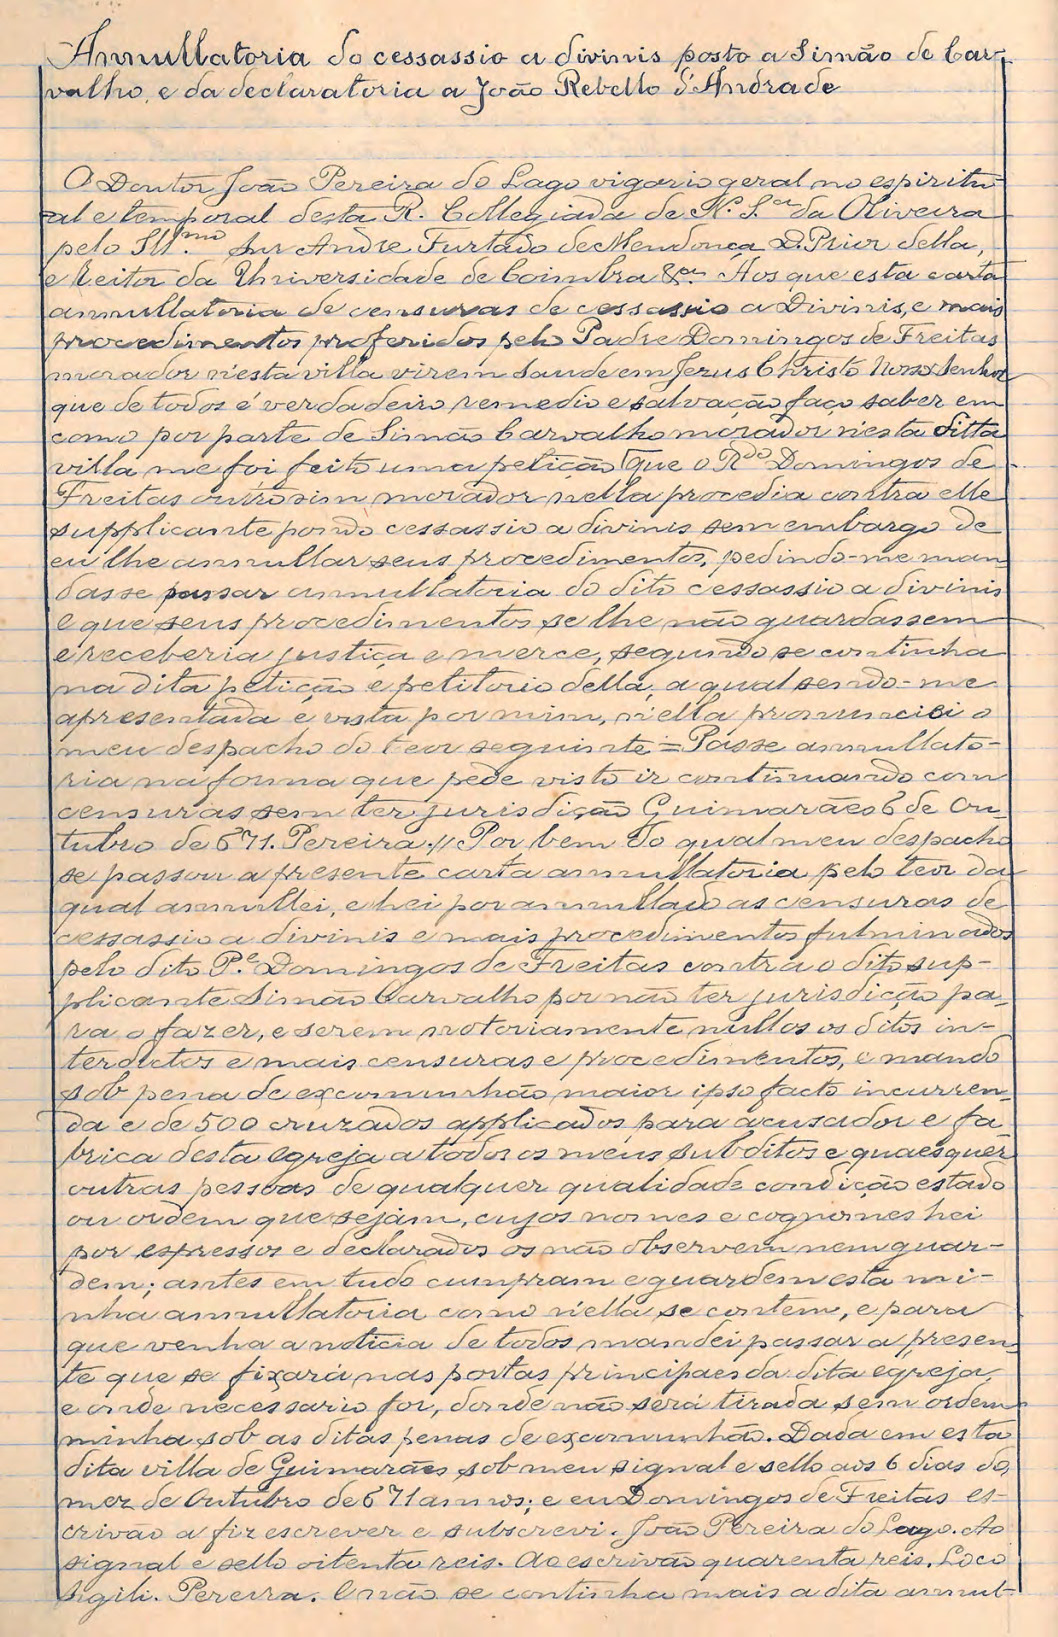 Annullatoria do cessassio a divinis posto a Simão de Car-
valho, e da declaratoria a João Rebello d'Andrade
O Doutor João Pereira do Lago vigario geral no espiritu-
al e temporal desta R. Collegiada de N. S.ra da Oliveira
pelo Ill.mo Snr Andre Furtado de Mendonça D. Prior della,
e Reitor da Universidade de Coimbra &.a Aos que esta carta
annullatoria de censuras de cessassio a Divinis, e mais
procedimentos proferidos pelo Padre Domingos de Freitas
morador n'esta villa virem saude em Jezus Christo Nosso Senhor
que de todos é verdadeiro remedio e salvação faço saber em
como por parte de Simão Carvalho morador n'esta ditta
villa me foi feito uma petição que o R.do Domingos de
Freitas outrosim morador nella procedia contra elle
supplicante pondo cessassio a divinis sem embargo de
eu lhe annullar seus procedimentos, pedindo-me man
dasse passar annullatoria do dito cessassio a divinis
e que seus procedimentos se lhe não guardassem
e receberia justiça e merce, segundo se continha
na dita petição e petitorio della, a qual sendo-me
apresentada e vista por mim, n'ella pronunciei o
meu despacho do teor seguinte = Passe annullato-
ria na forma que pede visto ir continuando com
censuras sem ter jurisdição Guimarães 6 de Ou-
tubro de 671. Pereira // Por bem do qual meu despacho
se passou a presente carta annullatoria pelo teor da
qual annullei, e hei por annullado as censuras de
cessassio a divinis e mais procedimentos fulminados
pelo dito P.e Domingos de Freitas contra o dito sup-
plicante Simão Carvalho por não ter jurisdição pa-
ra o fazer, e serem notoriamente nullos os ditos in-
terdictos e mais censuras e procedimentos, e mando
sob pena de excomunhão maior ipso facto incurren-
da e de 500 cruzados applicados para acusador e fa
brica desta egreja a todos os meus subditos e quaesquer
outras pessoas de qualquer qualidade condição estado
ou ordem que sejam, cujos nomes e cognomes hei
por espressos e declarados os não observem nem guar-
dem; antes em tudo cumpram e guardem esta mi-
nha annullatoria como n'ella se contem, e para
que venha a noticia de todos mandei passar a presen-
te que se fixará nas portas principaes da dita egreja,
e onde necessario for, donde não será tirada sem ordem
minha sob as ditas penas de excomunhão. Dada em esta
dita villa de Guimarães sob meu signal e sello aos 6 dias do
mez de Outubro de 671 annos; e eu Domingos de Freitas es-
crivão a fiz escrever e subscrevi. João Pereira do Lago. Ao
signal e sello oitenta reis. Ao escrivão quarenta reis. Loco
sigili. Pereira. E não se continha mais a dita annul-